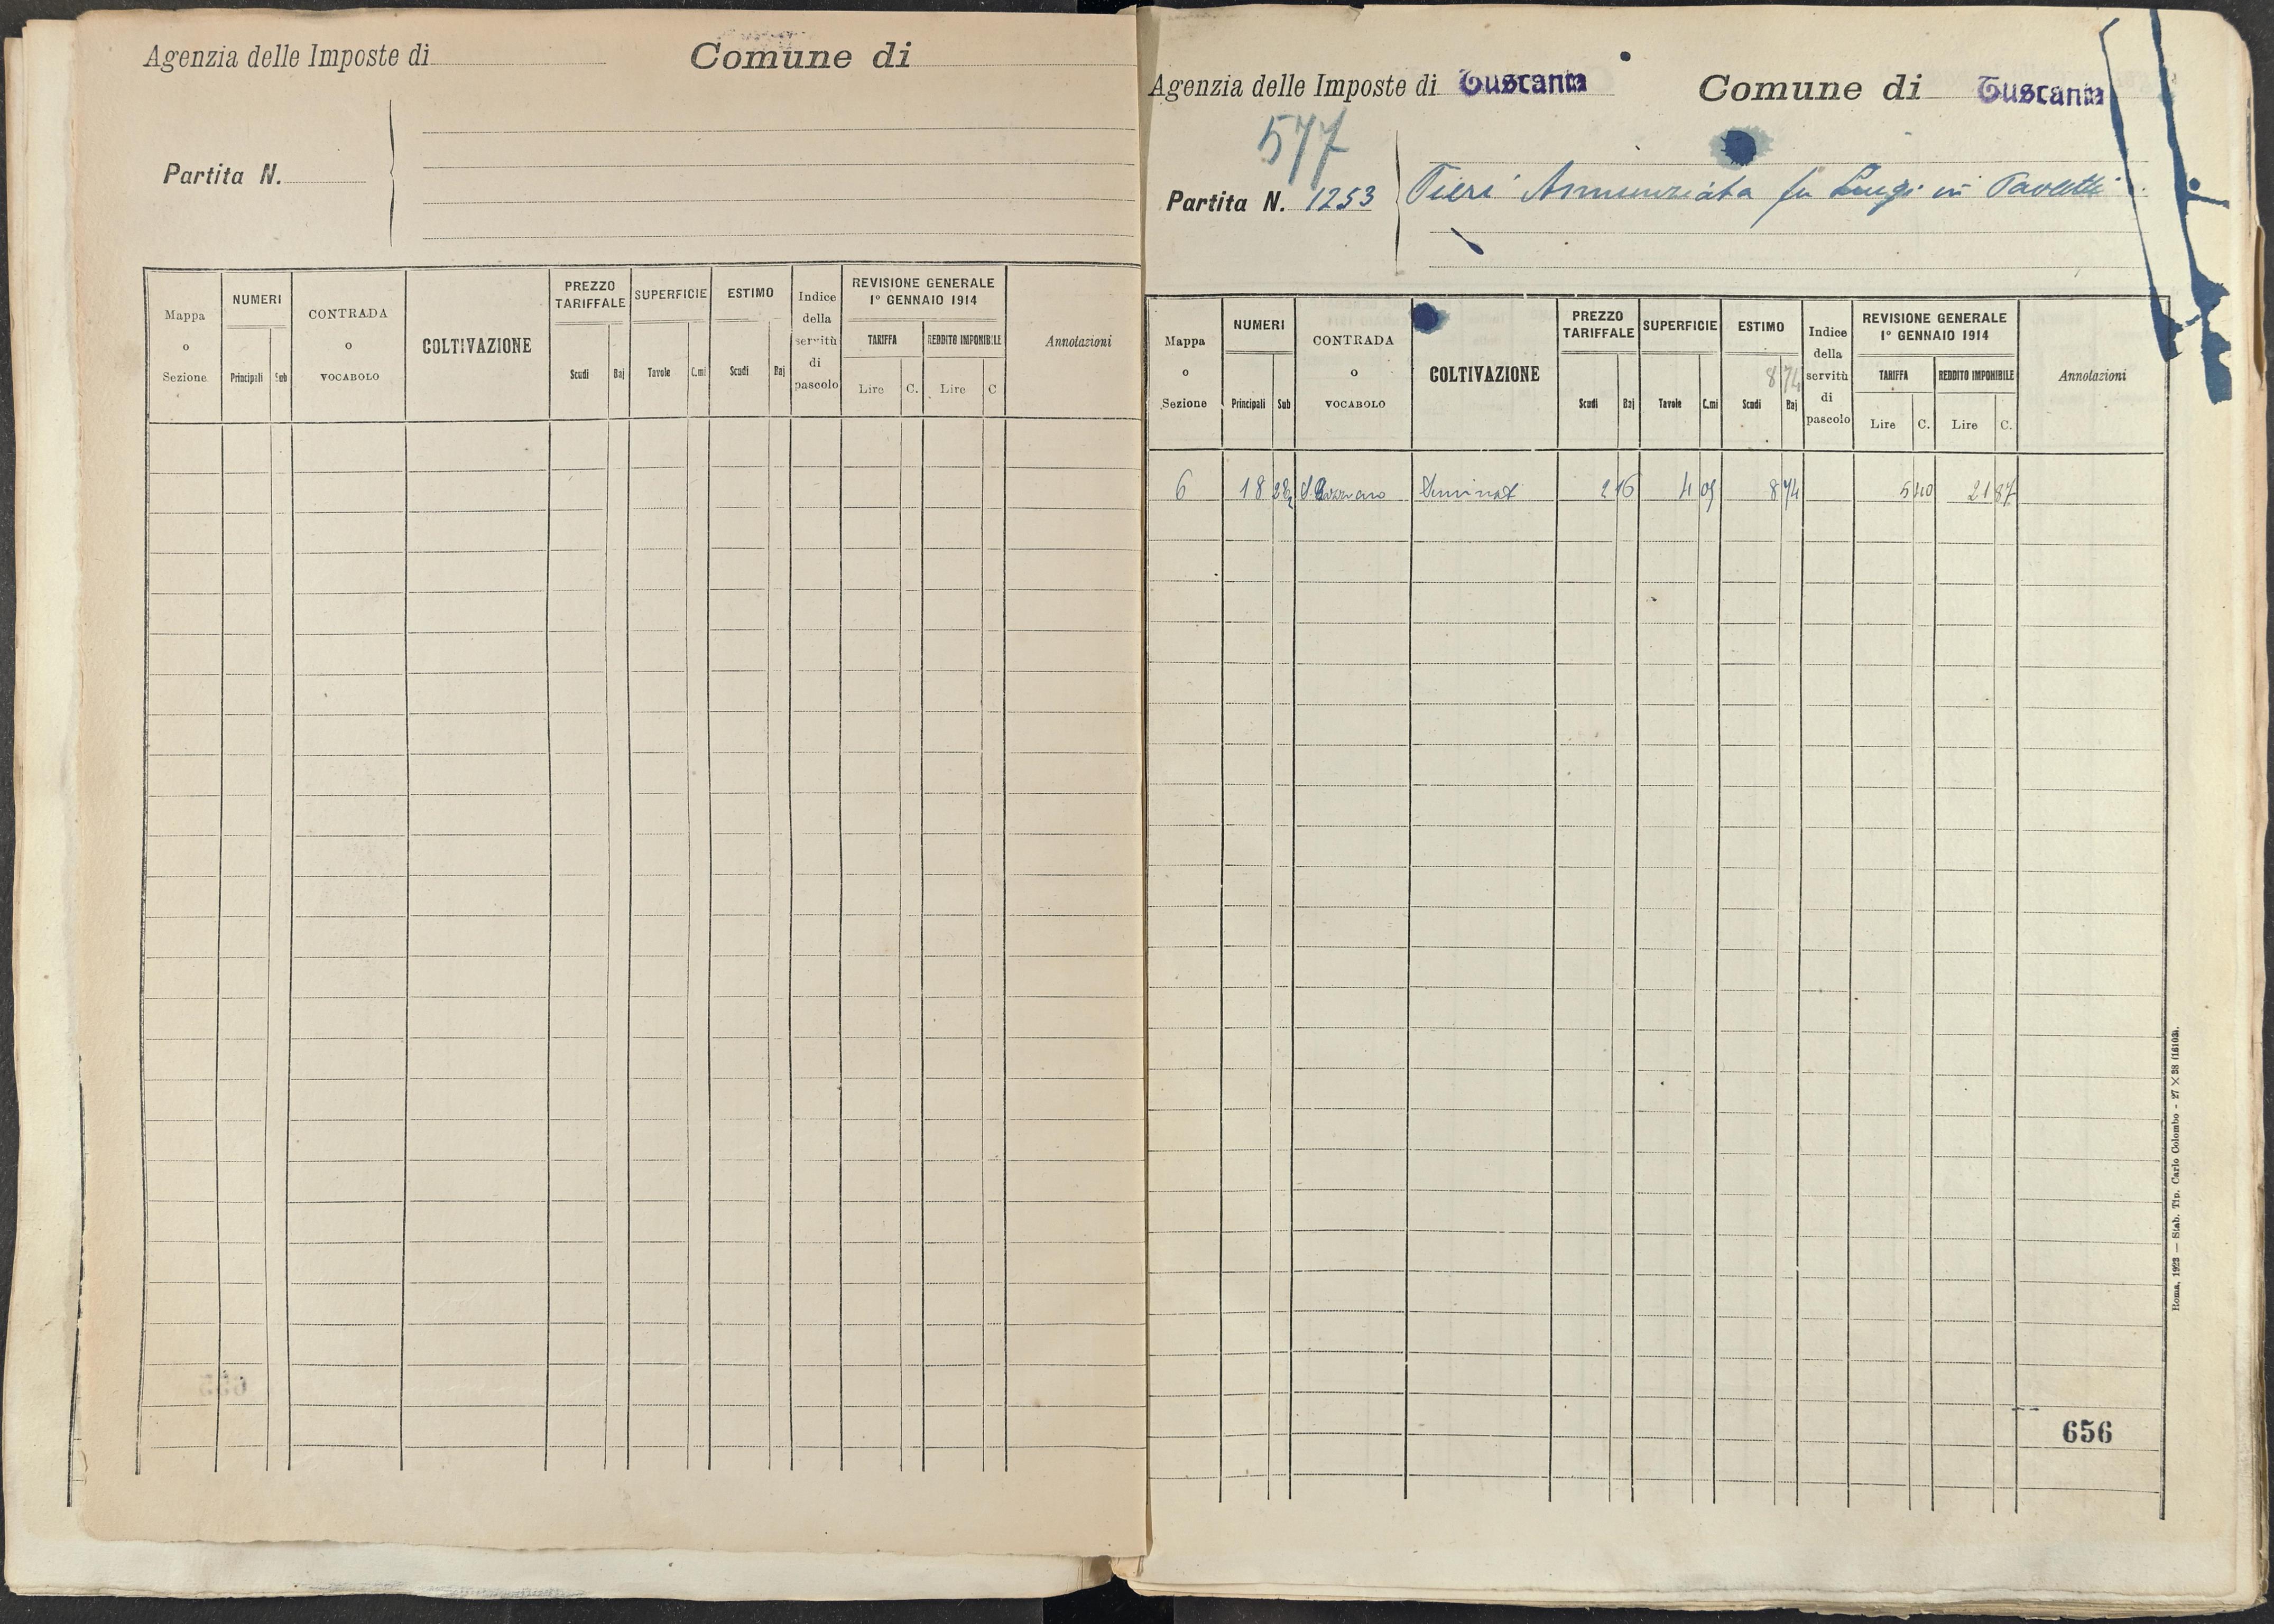 Agenzia delle Imposte di
Comune di
Partita N.
Mappa o Sezione
NUMERI
Principali
Sub
CONTRADA O VOCABOLO
COLTIVAZIONE
PREZZO TARIFFALE
Scudi
Baj
SUPERFICIE
Tavole
C.mi
ESTIMO
Scudi
Baj
Indice della servitù di pascolo
REVISIONE GENERALE
1° GENNAIO 1914
TARIFFA
REDDITO IMPONIBILE
Lire
C.
Lire
C
Annotazioni
655
Agenzia delle Imposte di Tuscania
Comune di Tuscania
577
Partita N. 1253
Pieri Annunziata fu Luigi in Paoletti
Mappa o Sezione
NUMERI
Principali
Sub
CONTRADA O VOCABOLO
COLTIVAZIONE
PREZZO TARIFFALE
Scudi
Baj
SUPERFICIE
Tavole
C.mi
ESTIMO
8 74
Scudi
Baj
Indice della servitù di pascolo
REVISIONE GENERALE
1° GENNAIO 1914
TARIFFA
REDDITO IMPONIBILE
Lire
C.
Lire
C.
Annotazioni
6 18 Seminat 2 16 4 05 8 74 5 40 21 87
Roma, 1923 — Stab. Tip. Carlo Colombo - 27 × 38 (16103).
656